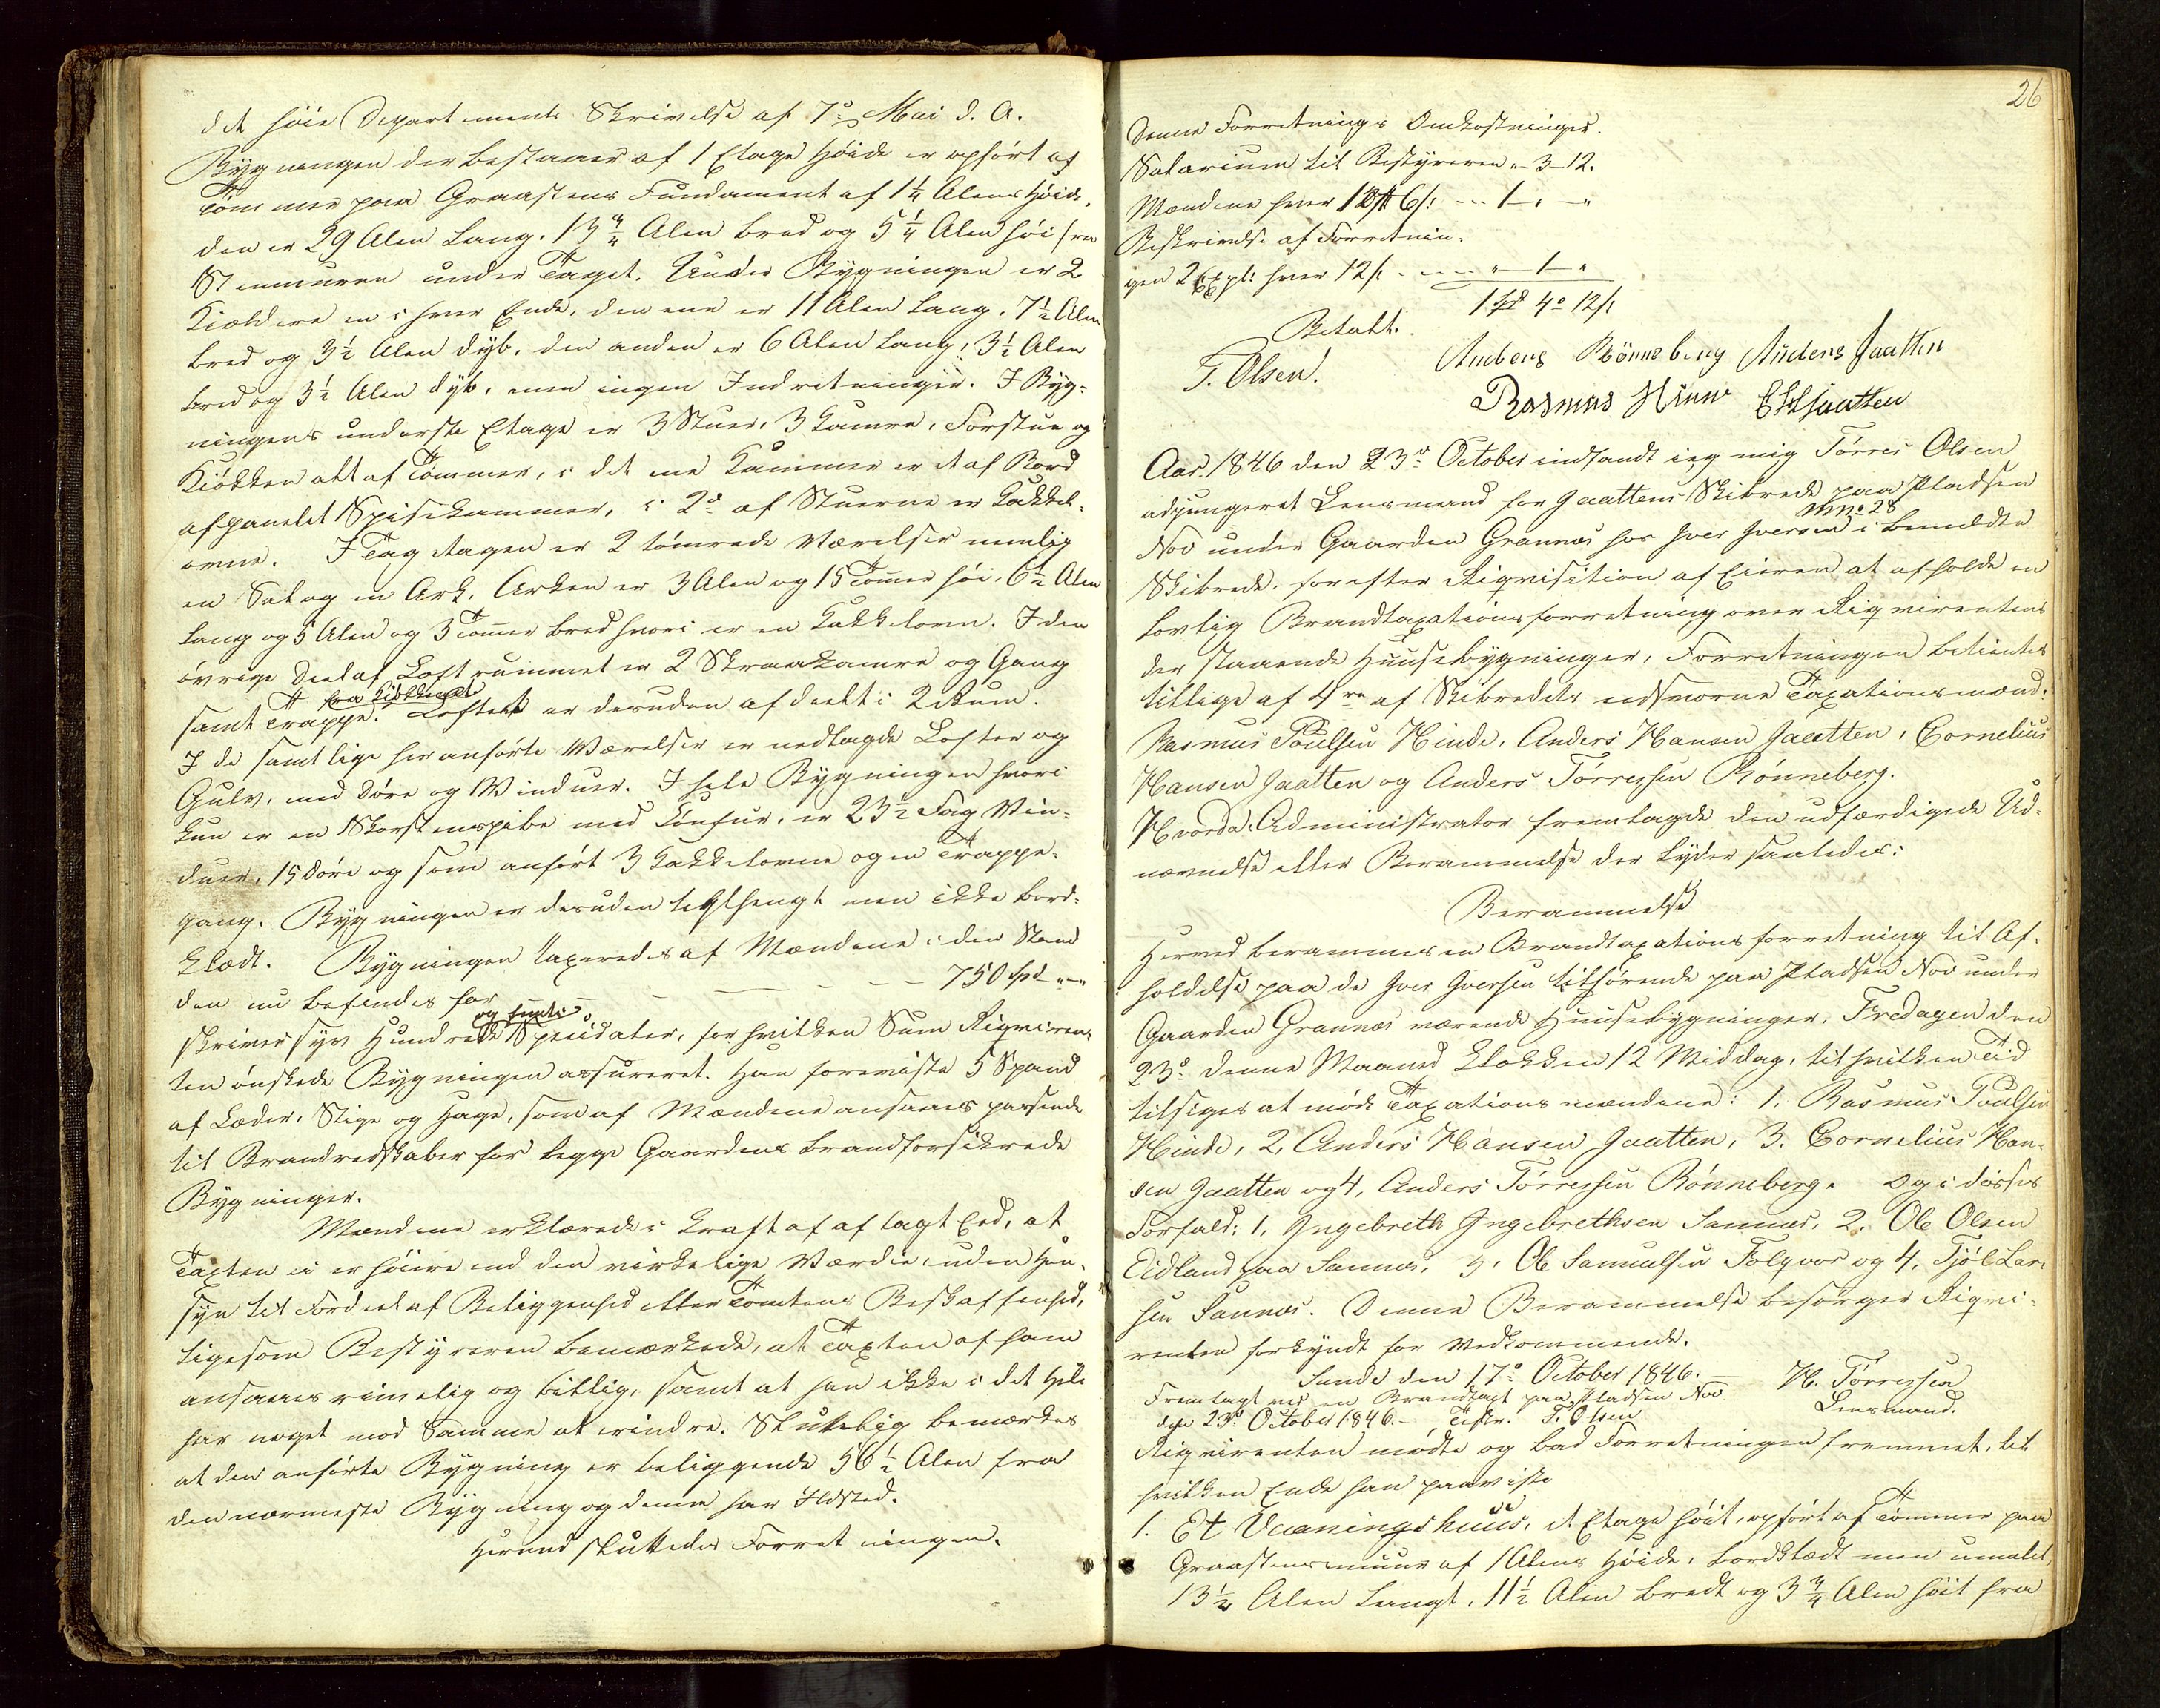 det høie Departements Skrivelse af 7de Mai d. A.
Bygningen der bestaaer af 1 Etage Høide er opført af
Tømmer paa Graasteens Fundament af 1 1/4 Alens Høide,
den er 29 Alen lang, 13 3/4 Alen bred og 5 1/4 Alen høi fra
Steenmuren under Taget. Under Bygningen er 2
Kieldere en i hver Ende, den ene er 11 Alen lang, 7 1/2 Alen
bred og 3 1/2 Alen dyb, den anden er 6 Alen lang, 3 1/2 Alen
bred og 3 1/2 Alen dyb, men ingen Indretninger. I Byg-
ningens underste Etage er 3 Stuer, 3 Kamre, Forstue og
Kiøkken alt af Tømmer, i det ene Kammer er et af Bord
afpanelet Spisekammer, i 2de af Stuerne er Kakkel-
ovne. I Tagetagen er 2 tømrede Værelser nemlig
en Sal og en Ark. Arken er 3 Alen og 15 Tommer høi, 6 1/2 Alen
lang og 5 Alen og 3 Tommer bred hvori er en Kakkelovn. I den
øvrige Deel af Loftrummet er 2 Skraakamre og Gang
samt Trappe fra Kiøkkenet. Loftet er desuden afdeelt i 2 Rum.
I de samtlige her anførte Værelser er nedlagde Lofter og
Gulv, med Døre og Vinduer. I hele Bygningen hvori
kun er en Skorstenspibe med Tønfur, er 23 1/2 Fag Vin-
duer, 15 Døre og som anført 3 Kakkelovne og en Trappe-
gang. Bygningen er desuden teglhengt men ikke bord-
klædt. Bygningen taxeredes af Mændene i den Stand
den nu befindes for - - - - - - 750 Spd " - "
skriver syv Hundrede og femti Speciedaler, for hvilken Sum Reqviren-
ten ønskede Bygningen assureret. Han foreviste 5 Spand
af Læder, Stige og Hage, som af Mændene ansaaes passende
til Brandredskaber for begge Gaardens brandforsikrede
Bygninger.
Mændene erklærede i Kraft af aflagt Eed, at
Taxten ei er høiere end den virkelige Værdie, uden Hen-
syn til Fordeel af Beliggenhed eller Tomtens Beskaffenhed,
ligesom Bestyreren bemærkede, at Taxten af ham
ansaaes rimelig og billig, samt at han ikke i det Hele
har noget mod Samme at erindre. Sluttelig bemærkes
at den anførte Bygning er beliggende 56 1/2 Alen fra
den nærmeste Bygning og denne har Ildsted.
Hermed sluttedes Forretningen.
26
Denne Forretnings Omkostninger.
Salarium til Bestyreren " - 3 - 12.
Mændene hver 1 6/: --- 1 - " - "
Beskrivelse af Forretnin-
gen 2 Expl: hver 12/: - - - " - 1 - "
1 Spd 4 12/:
Betalt.
T. Olsen.
Anders Rönneberg Anders Jaatten
Rasmus Hinne C H Jaatten
Aar 1846 den 23de October indfandt ieg mig Tørres Olsen
adjungeret Lensmand for Jaattens Skibrede paa Pladsen
Nov under Gaarden Grannæs hos Iver Iversen M No 28 i bemeldte
Skibrede, for efter Reqvisition af Eieren at afholde en
lovlig Brandtaxationsforretning over Reqvirentens
der staaende Huusebygninger, Forretningen betientes
tillige af 4re af Skibredets edsvorne Taxationsmænd.
Rasmus Poulsen Hinde, Anders Hansen Jaatten, Cornelius
Hansen Jaatten og Anders Tørressen Rønneberg.
Hvorda Administrator fremlagde den udfærdigede Ud-
nævnelse eller Berammelse der lyder saaledes:
Berammelse
Herved berammes en Brandtaxationsforretning til Af-
holdelse paa de Iver Iversen tilhørende paa Pladsen Nov under
Gaarden Grannæs værende Huusebygninger, Fredagen den
23de denne Maaned Klokken 12 Middag, til hvilken Tid
tilsiges at møde Taxationsmændene: 1, Rasmus Poulsen
Hinde, 2, Anders Hansen Jaatten, 3. Cornelius Han-
sen Jaatten og 4, Anders Tørressen Rønneberg. Og i disses
Forfald: 1, Ingebreth Ingebrethsen Sannæs, 2, Ole Olsen
Eidland paa Sannæs, 3, Ole Samuelsen Folqvor og 4, Tjöl Lar-
sen Sannæs. Denne Berammelse besørger Reqvi-
renten forkyndt for Vedkommende.
Sande den 17de October 1846. H. Tørressen
Lensmand.
Fremlagt ved en Brandtaxt paa Pladsen Nov
den 23de October 1846. T. Olsen
Reqvirenten mødte og bad Forretningen fremmet, til
hvilken Ende han paaviste
1. Et Vaaningshuus, et Etage høit, opført af Tømmer paa
Graasteensmuur af 1 Alens Høide, bordklædt men umalet,
13 1/2 Alen langt, 11 1/2 Alen bredt og 3 3/4 Alen høit fra